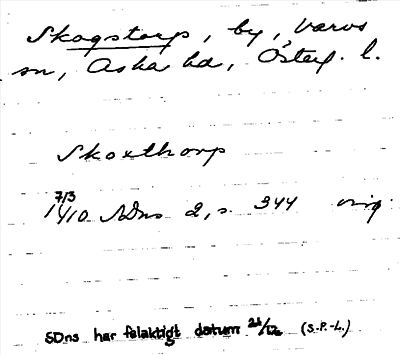 Skogstorp, by, Varvs
sn, Aska hd, Österg. l.
Skoxthorp
7/3
1410 SDns 2, s. 344 orig.
SDns har felaktigt datum (S.P.-L.)